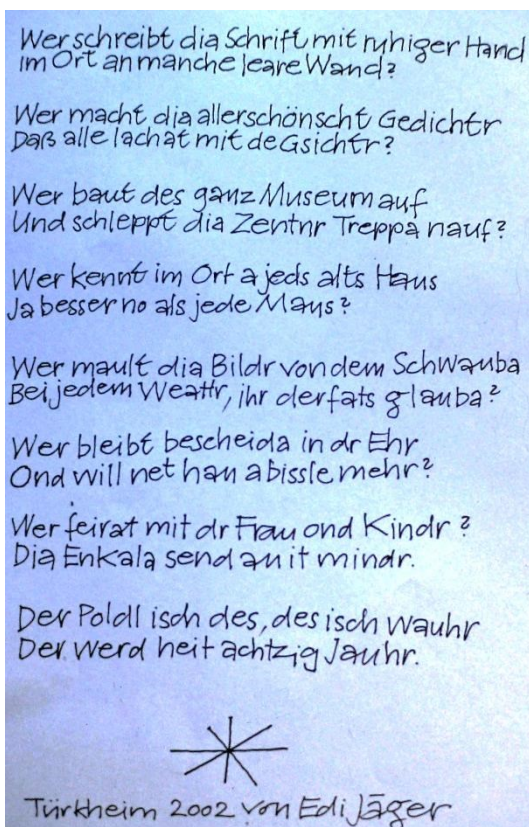 Wer schreibt dia Schrift mit ruhiger Hand
im Ort an manche leare Wand?
Wer macht dia allerschönscht Gedichtr
Daß alle lachat mit de Gsichtr?
Wer baut des ganz Museum auf
Und schleppt dia Zentnr Treppa nauf?
Wer kennt im Ort a jeds alts Haus
Ja besser no als jede Maus?
Wer mault dia Bildr von dem Schwauba
Bei jedem Weattr, ihr derfats glauba?
Wer bleibt bescheida in dr Ehr
Ond will net han a bissle mehr?
Wer feirat mit dr Frau ond Kindr?
Dia Enkala send au it mindr.
Der Poldl isch des, des isch wauhr
Der werd heit achtzig Jauhr.
Türkheim 2002 von Edi Jäger